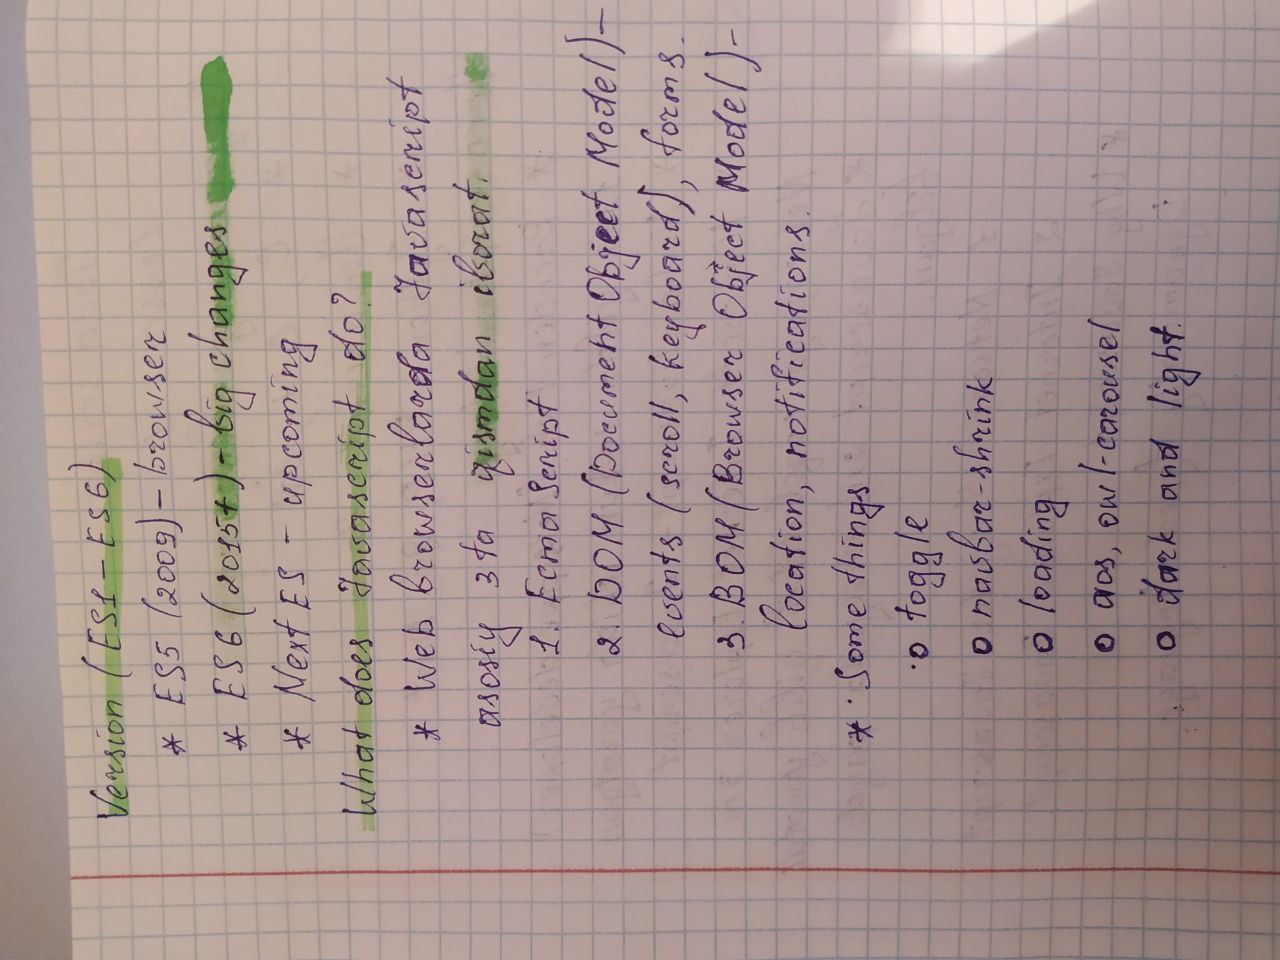 Version (ES1 - ES6)
* ES5 (2009) - browser
* ES6 (2015+) - big changes
* Next ES - upcoming
What does Javascript do?
* Web browserlarda Javascript
asosiy 3ta qismdan iborat.
1. Ecma Script
2. DOM (Document Object Model) -
events (scroll, keyboard), forms.
3. BOM (Browser Object Model) -
location, notifications.
* Some things
o toggle
o navbar-shrink
o loading
o aos, owl-carousel
o dark and light.